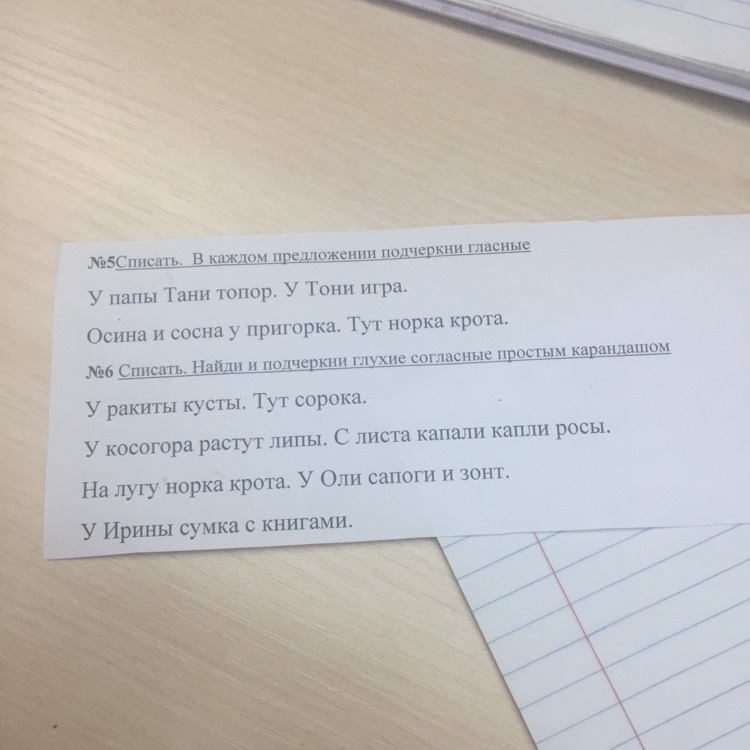 №5Списать. В каждом предложении подчеркни гласные
У папы Тани топор. У Тони игра.
Осина и сосна у пригорка. Тут норка крота.
№6 Списать. Найди и подчеркни глухие согласные простым карандашом
У ракиты кусты. Тут сорока.
У косогора растут липы. С листа капали капли росы.
На лугу норка крота. У Оли сапоги и зонт.
У Ирины сумка с книгами.